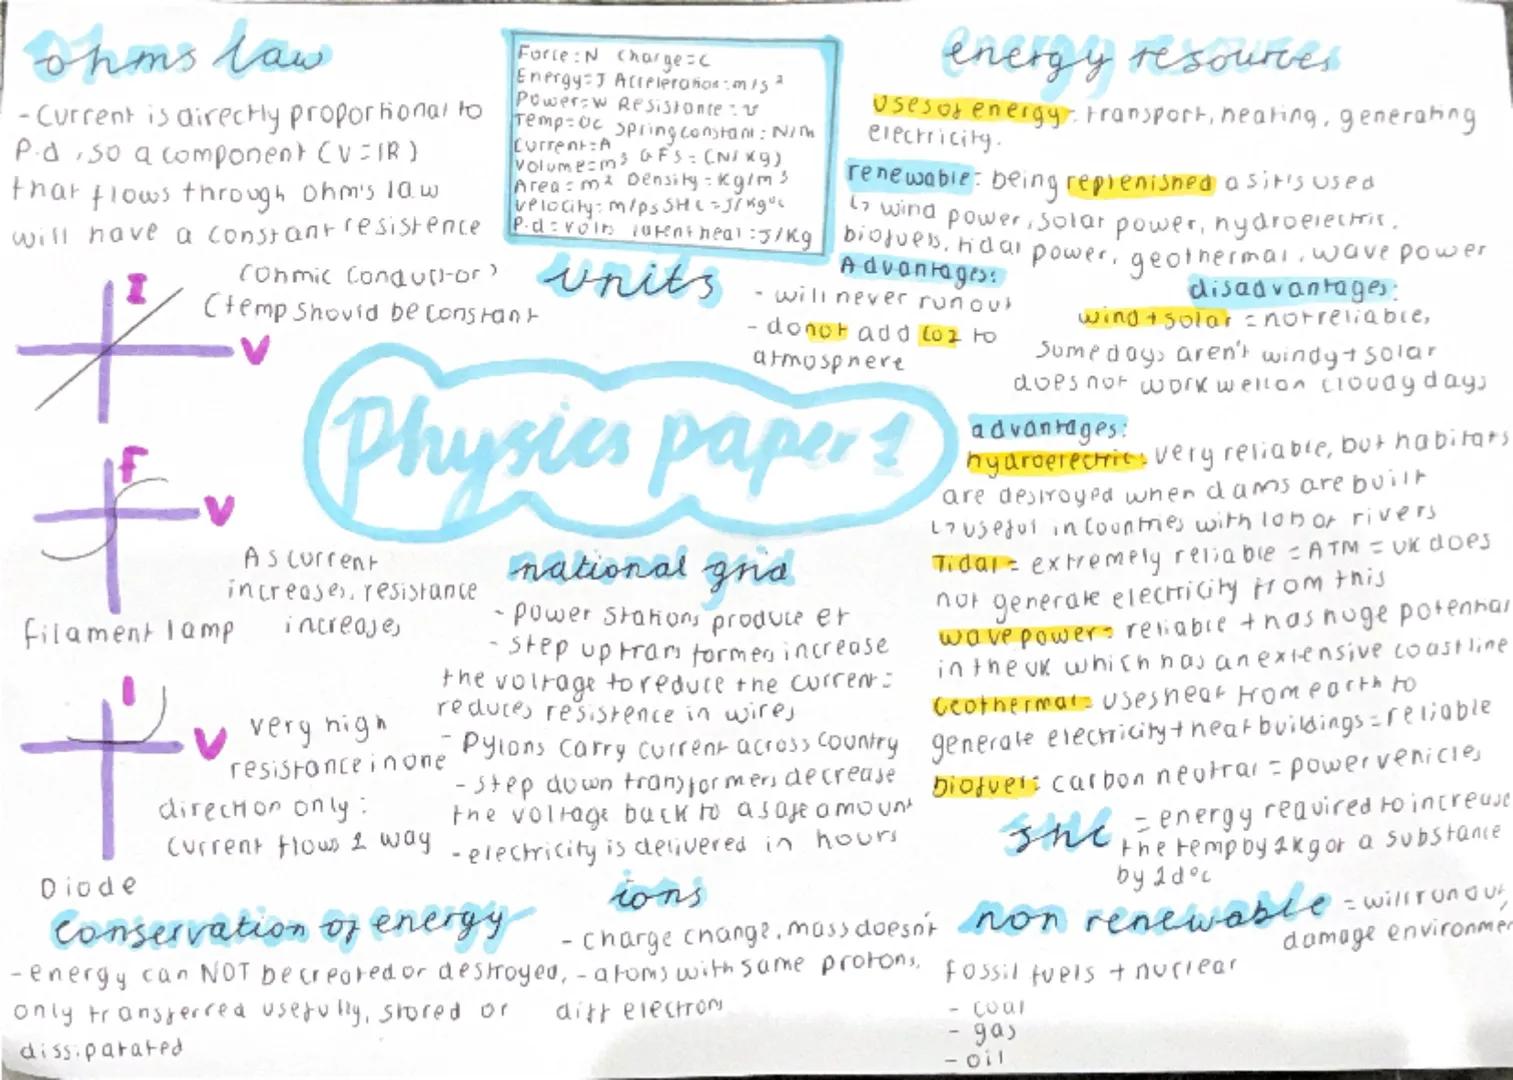 ohms law
- Current is directly proportional to
P.d, so a component (V=IR)
that flows through ohm's law
will have a constant resistence
(ohmic conductor)
(temp should be constant
I
V
F
V
As current
increases, resistance
increases
filament lamp
I
V
very high
resistance in one
direction only:
current flows 1 way
Diode
Force: N Charge=C
Energy=J Acceleration:m/s²
Power=W Resistance:
Temp=°C Spring constant: N/m
Current:A
Volume=m³ GFS=(N/Kg)
Area=m² Density=Kg/m³
velocity:m/ps SHC=J/Kg°C
P.d=volts latent heat:J/Kg
units
Physics paper 1
national grid
- power stations produce et
- step up transformers increase
the voltage to reduce the current=
reduces resistence in wires
- Pylons carry current across country
- step down transformers decrease
the voltage back to a safe amount
- electricity is delivered in hours
Conservation of energy
- energy can NOT be created or destroyed,
only transferred usefully, stored or
dissiparated
ions
- charge change, mass doesn't
- atoms with same protons,
diff electrons
energy resources
uses of energy- transport, heating, generating
electricity.
renewable: being replenished as it's used
↳ wind power, solar power, hydroelectric,
biofuess, tidal power, geothermal, wave power
Advantages:
- will never run out
- do not add CO2 to
atmosphere
disadvantages:
wind + solar = not reliable,
some days aren't windy + solar
does not work well on cloudy days
advantages:
hydroelectric: very reliable, but habitats
are destroyed when dams are built
↳ useful in countries with lots of rivers
Tidal = extremely reliable = ATM = UK does
not generate electricity from this
wave power= reliable + has huge potential
in the UK which has an extensive coastline
Geothermal= uses heat from earth to
generate electricity + heat buildings = reliable
biofuel: carbon neutral = power vehicles
SHC = energy required to increase
the temp by 1kg or a substance
by 1d°c
non renewable = will run out,
damage environmen
fossil fuels + nuclear
- coal
- gas
- oil